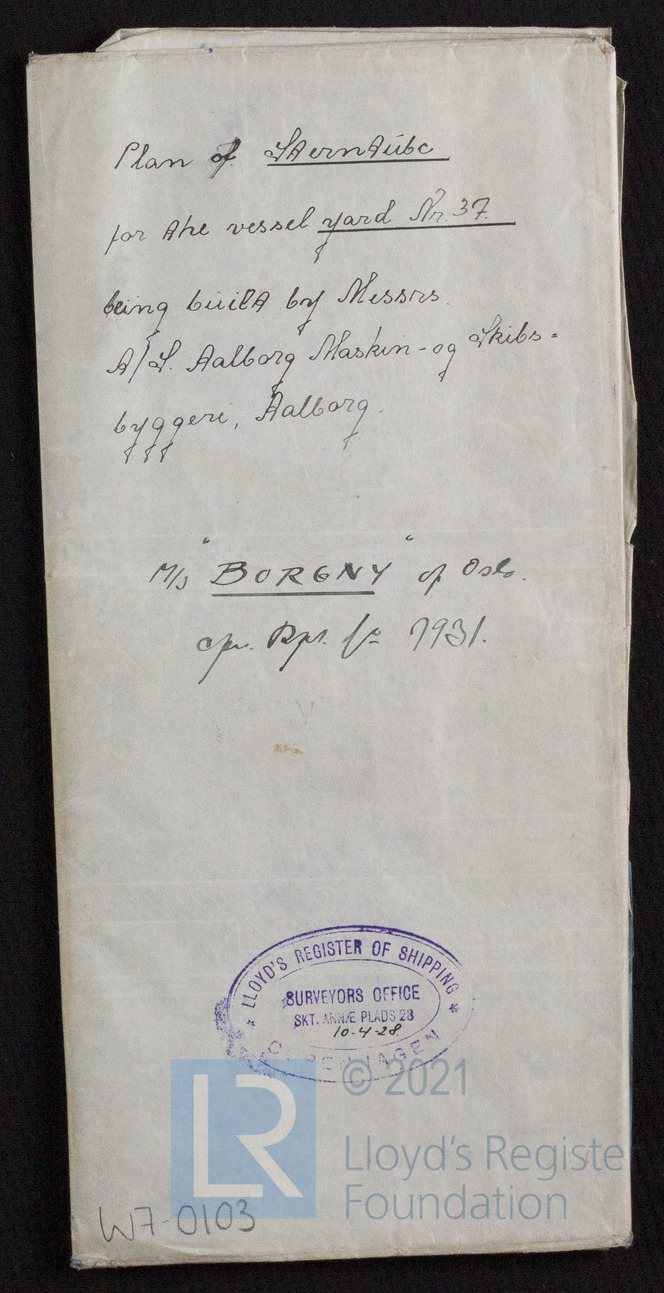 Plan of Sterntube
for the vessel yard Nr. 37.
being built by Messrs.
A/S. Aalborg Maskin- og Skibs-
byggeri, Aalborg.
M/s "BORGNY" of Oslo.
Cpn. Rpt. No 7931.
LLOYD'S REGISTER OF SHIPPING
SURVEYORS OFFICE
SKT. ANNÆ PLADS 28
10-4-28
COPENHAGEN
© 2021
LR
Lloyd's Register
Foundation
W7-0103